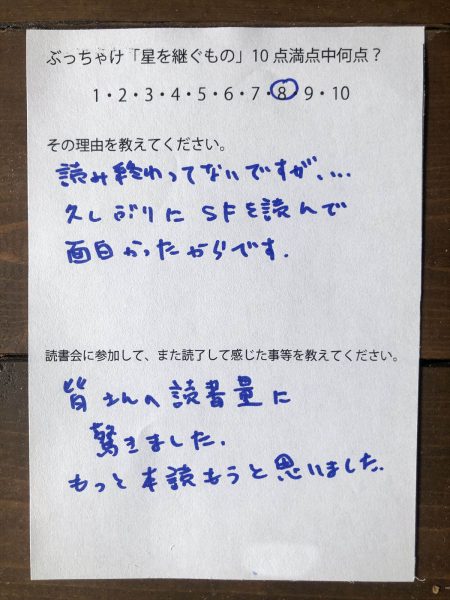 ぶっちゃけ「星を継ぐもの」10 点満点中何点？
1・2・3・4・5・6・7・8・9・10
その理由を教えてください。
読み終わってないですが、...
久しぶりに SFを読んで
面白かったからです.
読書会に参加して、また読了して感じた事等を教えてください。
皆さんの読書量に
驚きました.
もっと本読もうと思いました.